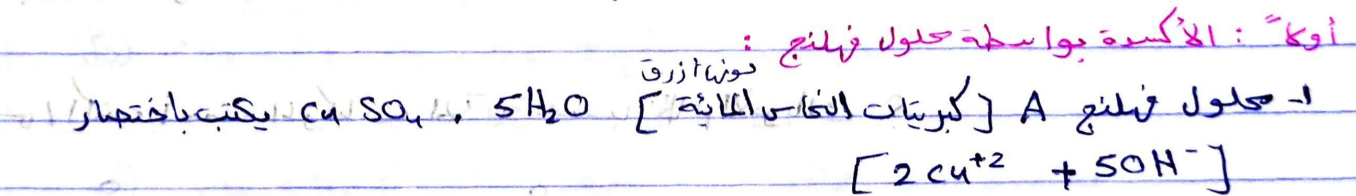 أولاً : الأكسدة بواسطة محلول فهلنج :
لونها أزرق
1- محلول فهلنج A [كبريتات النحاس المائية] CuSO₄ . 5H₂O يكتب باختصار
[2Cu⁺² + 5OH⁻]